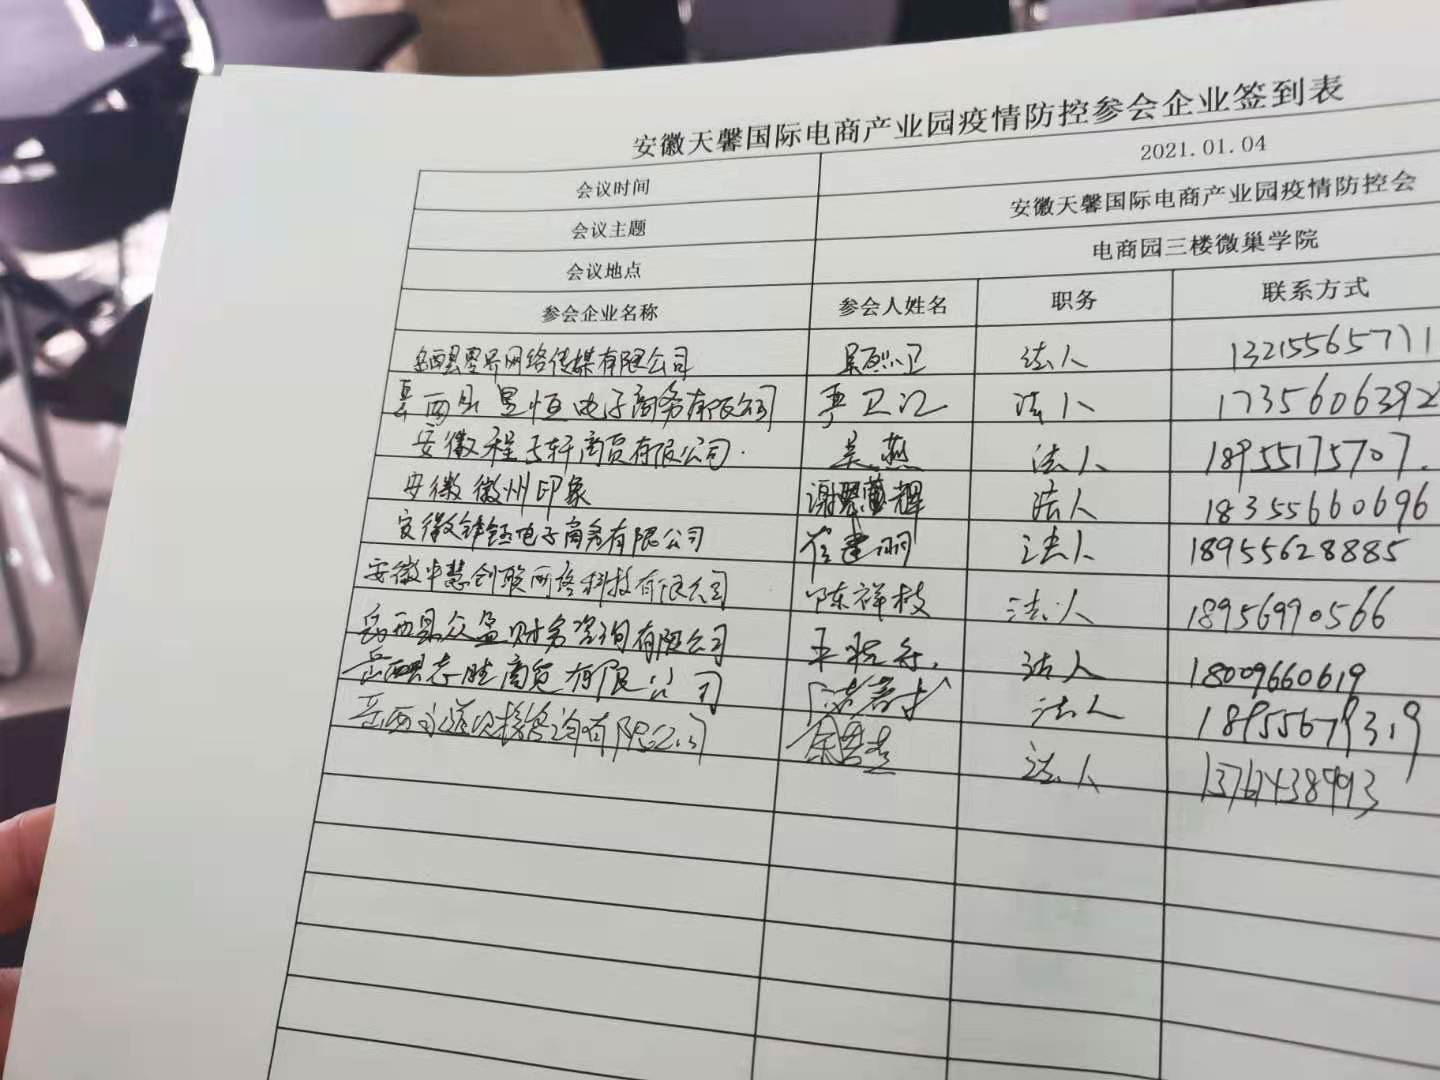 安徽天馨国际电商产业园疫情防控参会企业签到表
会议时间 2021.01.04
会议主题 安徽天馨国际电商产业园疫情防控会
会议地点 电商园三楼微巢学院
参会企业名称 参会人姓名 职务 联系方式
岳西县 界网络传媒有限公司 吴烈卫 法人 13215565771
岳西县昱恒电子商务有限公司 卫江 法人 1735606392
安徽程 轩商贸有限公司 吴燕 法人 18955175707
安徽徽州印象 谢 辉 法人 18355660696
安徽 钰电子商务有限公司 崔建 法人 18955628885
安徽中慧创联网络科技有限公司 陈祥枝 法人 18956990566
岳西县众盈财务咨询有限公司 王 法人 18009660619
岳西县志胜商贸有限公司 法人 18955679319
岳西 咨询有限公司 余 法人